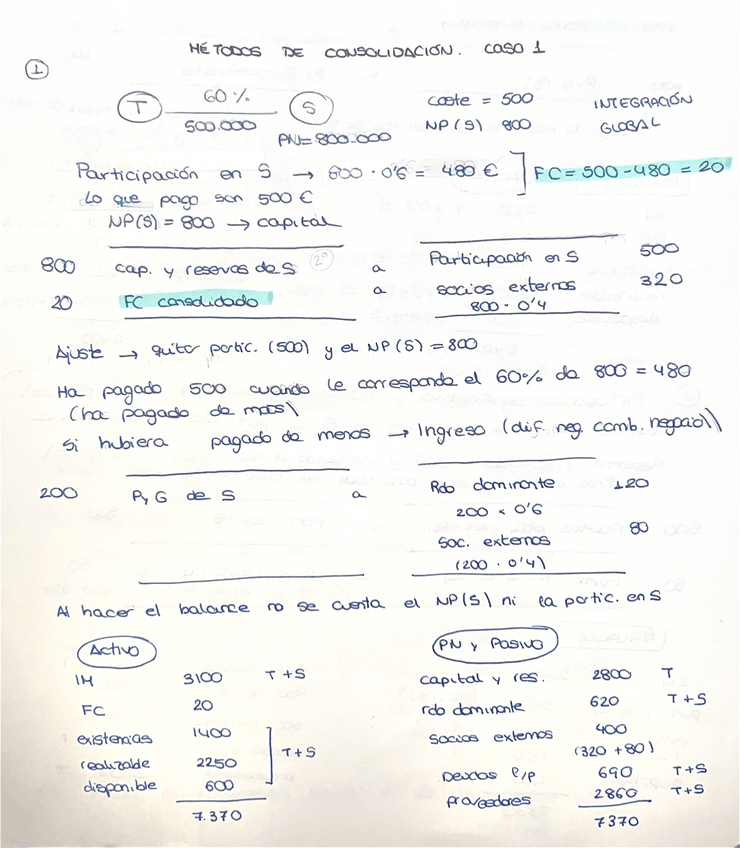 MÉTODOS DE CONSOLIDACIÓN. CASO 1
1
T 60% S coste = 500 INTEGRACIÓN
500.000 PN=800.000 NP(S) 800 GLOBAL
Participación en S → 800 · 0'6 = 480 € FC = 500 - 480 = 20
Lo que pago son 500 €
NP(S) = 800 → capital
800 cap. y reservas de S (2º) a Participación en S 500
20 FC consolidado a socios externos 320
800 · 0'4
Ajuste → quitar partic. (500) y el NP(S) = 800
Ha pagado 500 cuando le corresponde el 60% de 800 = 480
(ha pagado de más)
Si hubiera pagado de menos → Ingreso (dif. neg. comb. negocio)
200 PyG de S a Rdo dominante 120
200 x 0'6
Soc. externos 80
(200 · 0'4)
Al hacer el balance no se cuenta el NP(S) ni la partic. en S
Activo PN y Pasivo
IM 3100 T+S capital y res. 2800 T
FC 20 rdo dominante 620 T+S
existencias 1400 socios externos 400
(320 + 80)
realizable 2250 T+S Deudas l/p 690 T+S
disponible 600 proveedores 2860 T+S
7.370 7370